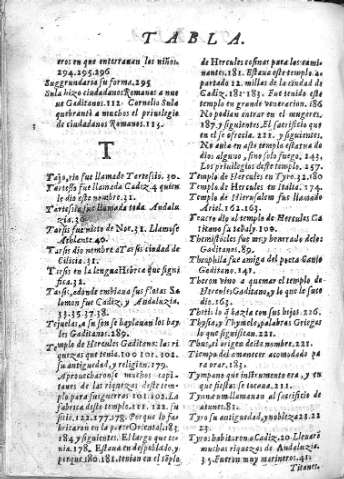 TABLA.
eros en que enterrauan los niños.
294.295.296
Suggrundaria su forma. 295
Sula hizo ciudadanos Romanos a nue
ue Gaditanos. 112. Cornelio Sula
quebrantò a muchos el priuilegio
de ciudadanos Romanos. 113.
T
Tajo, rio fue llamado Tartessio. 30.
Tartesso fue llamada Cadiz. 4 quien
le dio este nombre. 31.
Tartesita fue llamada toda Andalu
zia. 30
Tarsis fue nieto de Noe. 31. Llamose
Athlante. 40.
Tarsis dio nombre a Tarsis ciudad de
Cilicia. 31.
Tarsis en la lengua Hebrea que signi
fica. 32
Tarsis, adonde embiaua sus flotas Sa
lomon fue Cadiz, y Andaluzia.
33.35.37.38.
Tejuelas a su son se baylauan los bay
les Gaditanos. 289.
Templo de Hercules Gaditano: las ri
quezas que tenia. 100 101. 102.
su antiguedad, y religion. 179.
Aprouecharonse muchos capi-
tanes de las riquezas deste tem-
plo para sus guerras 101.102. La
fabrica deste templo. 111. 122. su
sitio. 122.177.178. Porque lo fa
bricaron en la parte Oriental. 183.
184 y siguientes. El largo que te-
nia. 178. Estaua en despoblado, y
porque 180.181. tenian en el templo
de Hercules cosinas para los cami-
nantes. 181. Estaua este templo a-
partado 12. millas de la ciudad de
Cadiz. 182.183. Fue tenido este
templo en grande veneracion. 186
No podian entrar en el mugeres.
187. y siguientes. El sacrificio que
en el se ofrecia. 221. y siguientes.
No auia en este templo estatua de
dios alguno, sino solo fuego. 243.
Los priuilegios deste templo. 257.
Templo de Hercules en Tyro. 32. 180
Templo de Hercules en Italia. 174.
Templo de Hierusalem fue llamado
Ariel. 162. 163.
Teucro dio al templo de Hercules Ca
ditano su tahali. 100.
Themistocles fue muy honrado de los
Gaditanos. 89.
Theophila fue amiga del poeta Canio
Gaditano. 141.
Theron vino a quemar el templo de
Hercules Gaditano, y lo que le suce
dio. 163.
Thoti: lo q̃ hazia con sus hijas. 226.
Thysia, y Thymelo, palabras Griegas
lo que significan. 221.
Thus, el origen deste nombre. 221.
Tiempo del amanecer acomodado pa
ra orar. 183.
Tympano que instrumento era, y en
que fiestas se tocaua. 211.
Tyro
Tyro su antiguedad, y nobleza 22.
Tyro: habitaron a Cadiz. 20 Lleuarõ
muchas riquezas de Andaluzia.
35. Fueron muy marineros. 41.
Titanes.